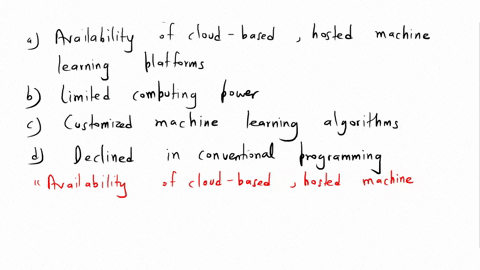 a) Availability of cloud-based, hosted machine
learning platforms
b) Limited computing power
c) Customized machine learning algorithms
d) Declined in conventional programming
"Availability of cloud-based, hosted machine